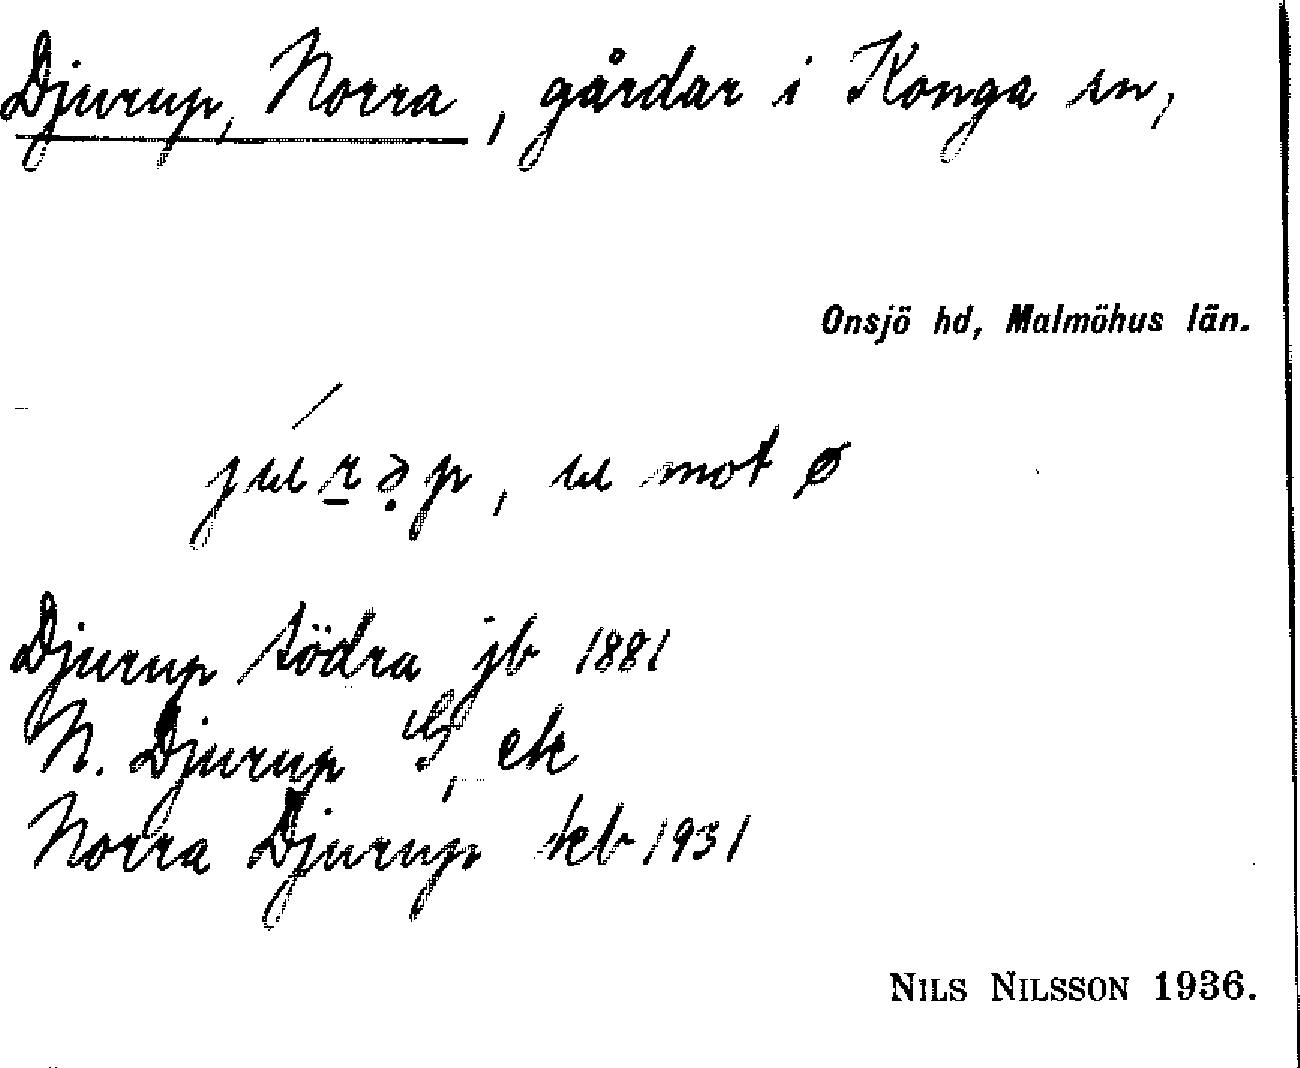 Djurup, Norra, gårdar i Konga sn,
Onsjö hd, Malmöhus län.
mot ø
Djurup södra jb 1881
N. Djurup ek
Norra Djurup kb 1931
NILS NILSSON 1936.